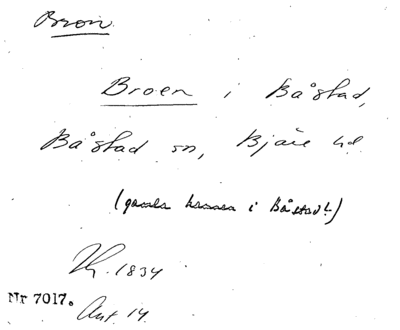 Bron
Broen i Båstad,
Båstad sn, Bjäre hd.
(gamla i Båstad!)
1834
Nr 7017.
Ant. 14.